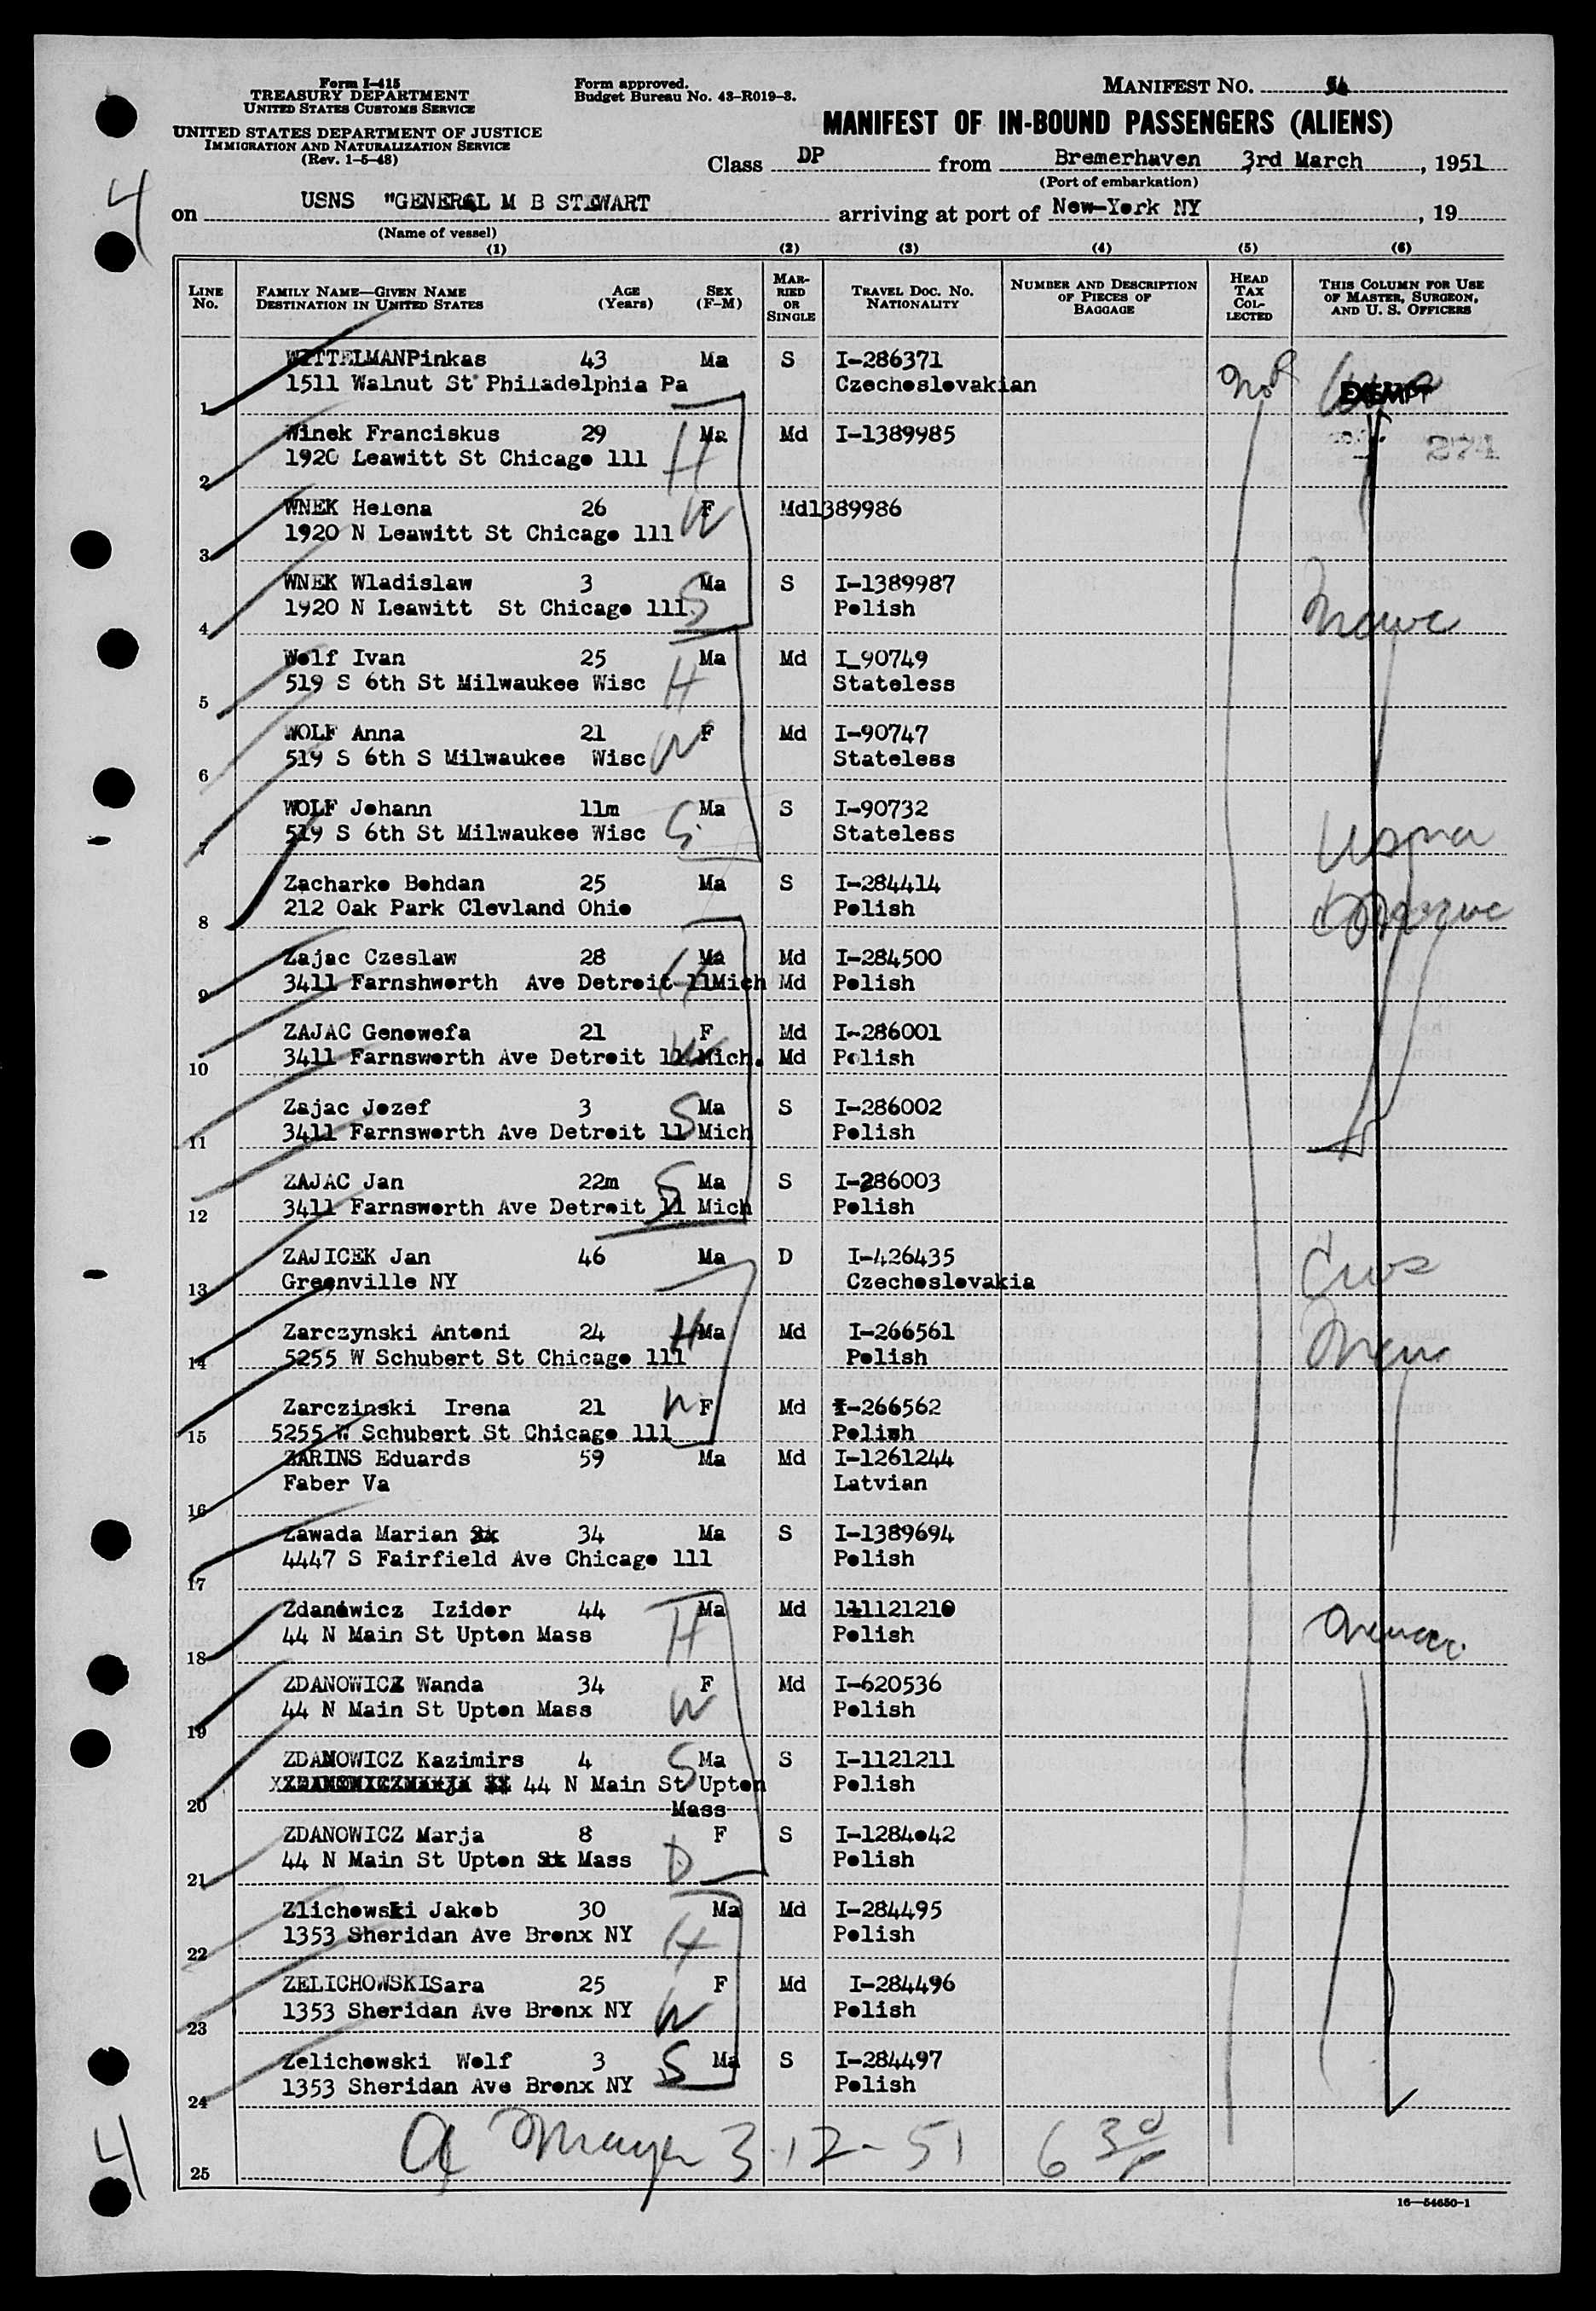 Form I-415
TREASURY DEPARTMENT
UNITED STATES CUSTOMS SERVICE
UNITED STATES DEPARTMENT OF JUSTICE
IMMIGRATION AND NATURALIZATION SERVICE
(Rev. 1-5-48)
Form approved.
Budget Bureau No. 43-R019-3.
MANIFEST NO.
MANIFEST OF IN-BOUND PASSENGERS (ALIENS)
Class DP from Bremerhaven 3rd March, 1951
(Port of embarkation)
4
on USNS "GENERAL M B STEWART arriving at port of New-York NY, 19
(Name of vessel)
(1) (2) (3) (4) (5) (6)
LINE No. FAMILY NAME—GIVEN NAME DESTINATION IN UNITED STATES AGE (Years) SEX (F-M) MARRIED OR SINGLE TRAVEL DOC. No. NATIONALITY NUMBER AND DESCRIPTION OF PIECES OF BAGGAGE HEAD TAX COLLECTED THIS COLUMN FOR USE OF MASTER, SURGEON, AND U. S. OFFICERS
WITTELMANPinkas 43 Ma S I-286371
1 1511 Walnut St Philadelphia Pa Czechoslovakian EXEMPT
Winek Franciskus 29 Ma Md I-1389985 274
2 1920 Leawitt St Chicago 111 H
WNEK Helena 26 F Md1389986
3 1920 N Leawitt St Chicago 111 W
WNEK Wladislaw 3 Ma S I-1389987
4 1920 N Leawitt St Chicago 111 S Polish
Wolf Ivan 25 Ma Md I_90749
5 519 S 6th St Milwaukee Wisc H Stateless
WOLF Anna 21 F Md I-90747
6 519 S 6th S Milwaukee Wisc W Stateless
WOLF Johann 11m Ma S I-90732
7 519 S 6th St Milwaukee Wisc S Stateless
Zacharko Bohdan 25 Ma S I-284414
8 212 Oak Park Clevland Ohio Polish
Zajac Czeslaw 28 Ma Md I-284500
9 3411 Farnshworth Ave Detroit 11Mich H Md Polish
ZAJAC Genowefa 21 F Md I-286001
10 3411 Farnsworth Ave Detroit 11 Mich. W Md Polish
Zajac Jozef 3 S Ma S I-286002
11 3411 Farnsworth Ave Detroit 11 Mich Polish
ZAJAC Jan 22m S Ma S I-286003
12 3411 Farnsworth Ave Detroit 11 Mich Polish
ZAJICEK Jan 46 Ma D I-426435
13 Greenville NY Czechoslovakia
Zarczynski Antoni 24 H Ma Md I-266561
14 5255 W Schubert St Chicago 111 Polish
Zarczinski Irena 21 W F Md I-266562
15 5255 W Schubert St Chicago 111 Polish
ZARINS Eduards 59 Ma Md I-1261244
16 Faber Va Latvian
Zawada Marian 34 Ma S I-1389694
17 4447 S Fairfield Ave Chicago 111 Polish
Zdanowicz Izidor 44 Ma Md 111121210
18 44 N Main St Upton Mass H Polish
ZDANOWICZ Wanda 34 F Md I-620536
19 44 N Main St Upton Mass W Polish
ZDANOWICZ Kazimirs 4 S Ma S I-1121211
20 44 N Main St Upton Polish
Mass
ZDANOWICZ Marja 8 F S I-1284042
21 44 N Main St Upton Mass D Polish
Zlichowski Jakob 30 Ma Md I-284495
22 1353 Sheridan Ave Bronx NY H Polish
ZELICHOWSKISara 25 F Md I-284496
23 1353 Sheridan Ave Bronx NY W Polish
Zelichowski Wolf 3 S Ma S I-284497
24 1353 Sheridan Ave Bronx NY Polish
4
25 3-12-51
16—54650-1